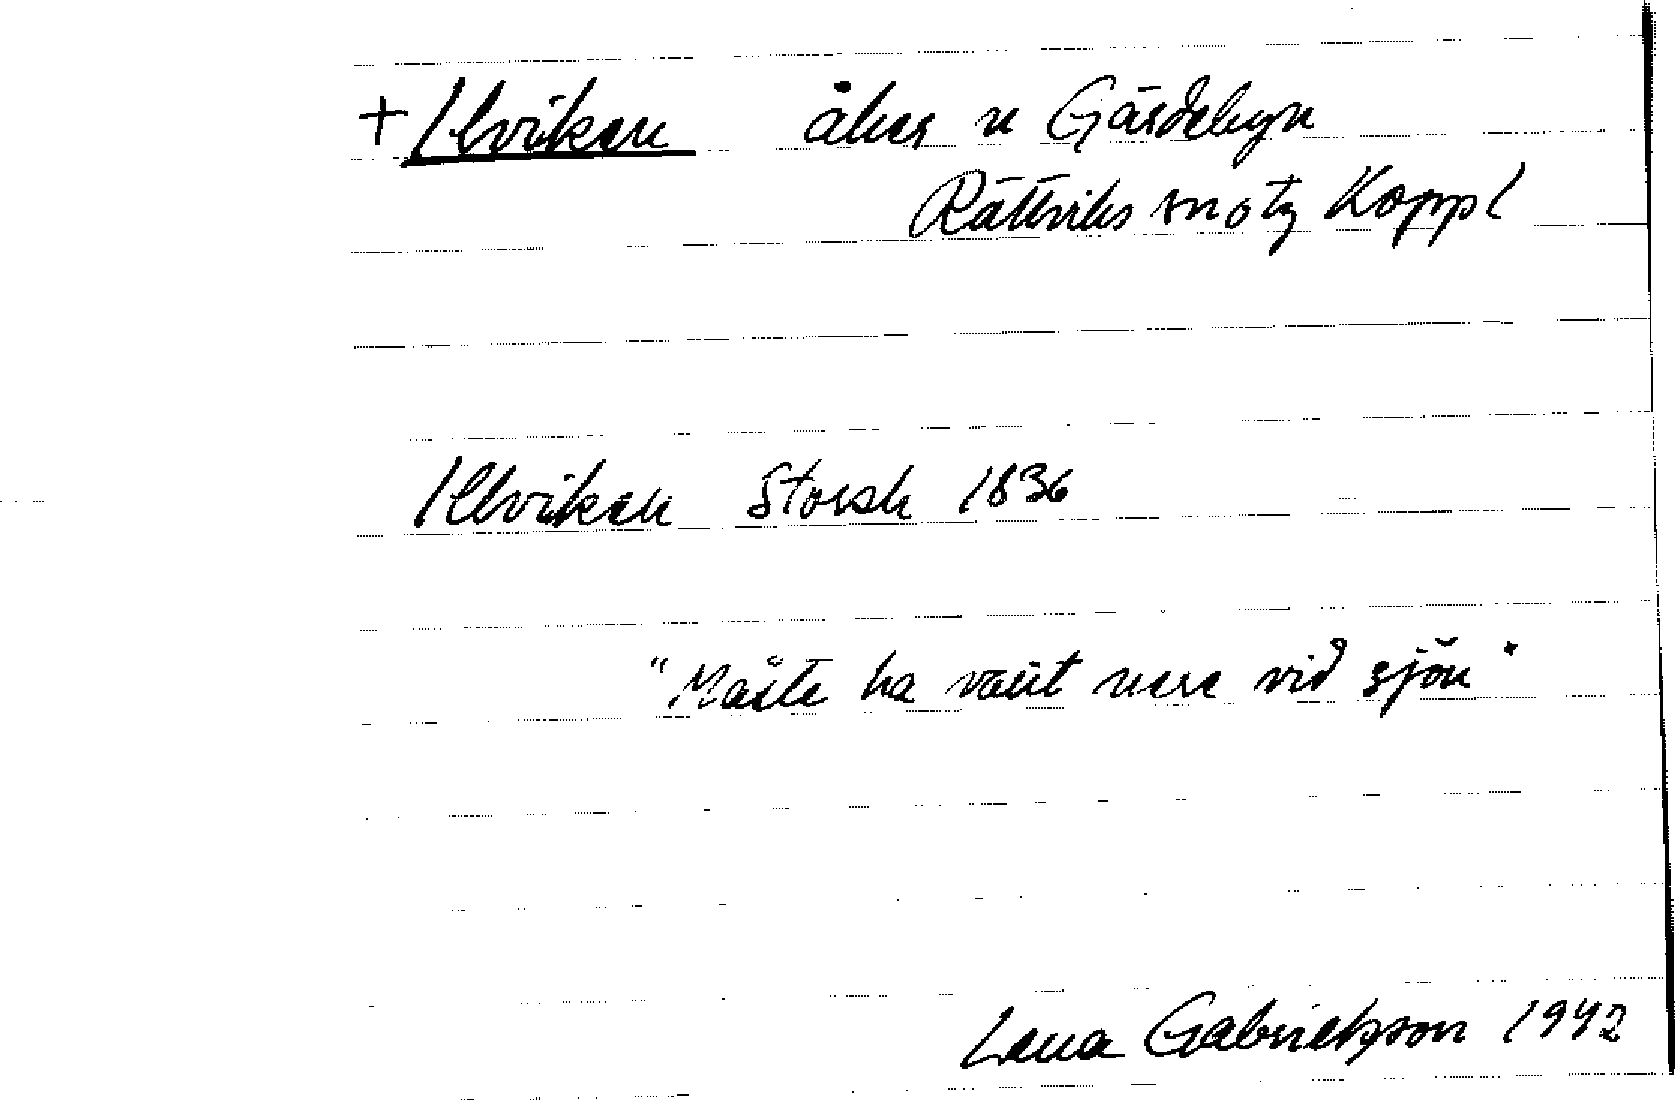 + Ilviken åker n Gärdebyn
Rättviks sn o tg Koppl
Illviken Storsk 1836
"Måste ha varit nere vid sjön"
Lena Gabrielsson 1942